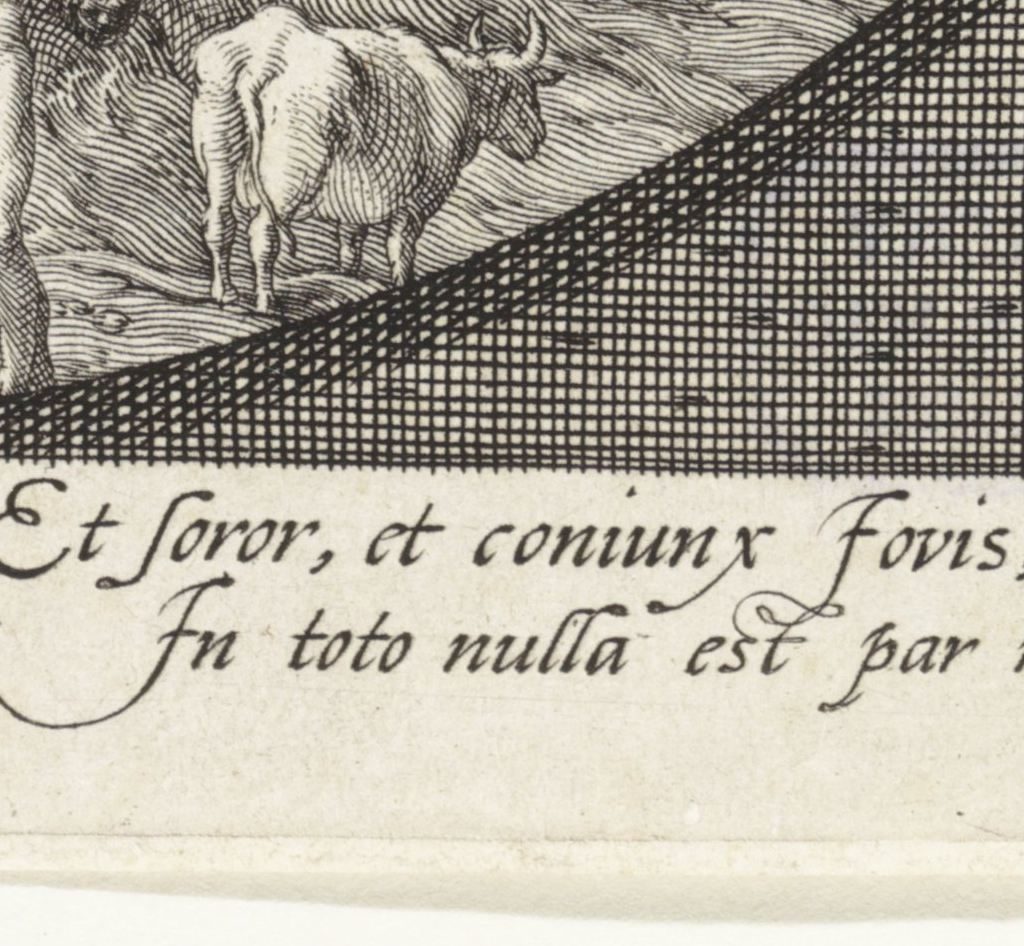 Et soror, et coniunx Jovis,
In toto nulla est par